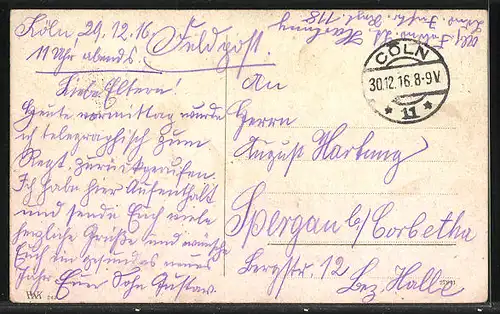 Köln, 29.12.16,
11 Uhr abends.
Feldpost.
Liebe Eltern!
Heute vormittag wurde
ich telegraphisch zum
Regt. zurückgerufen.
Ich habe hier Aufenthalt
und sende Euch viele
herzliche Grüße und wünsche
Euch ein gesundes neues
Jahr Euer Sohn Gustav.
Hartung
Inftr. Regt. 118
CÖLN
30.12.16.8-9V
* 11 *
An
Herrn
August Hartung
Spergau b/ Corbetha
Bergstr. 12
Bez. Halle